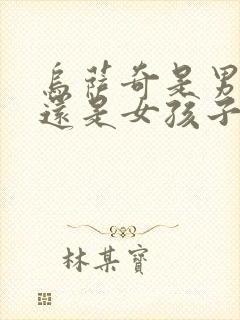 烏薩奇是男
還是女孩子
林某寶